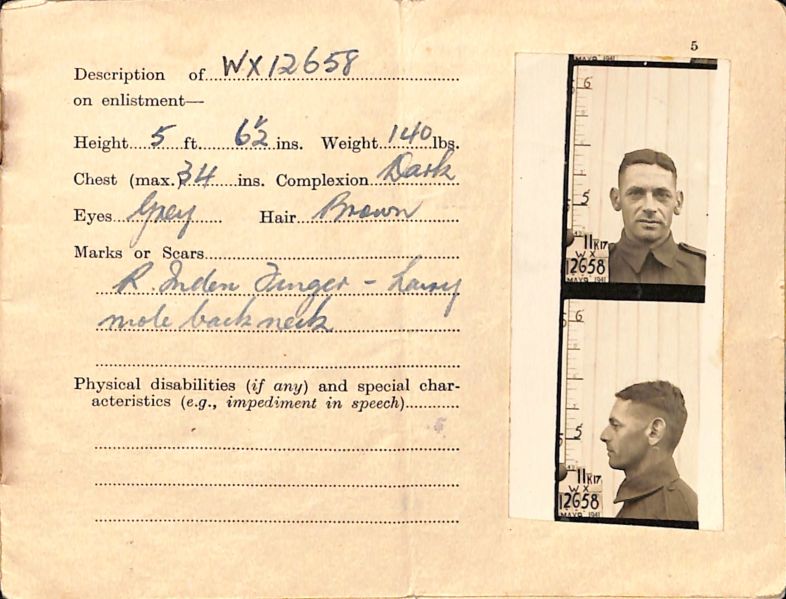 5
Description of WX12658
on enlistment—
Height 5 ft. 6½ ins. Weight 140 lbs.
Chest (max.) 34 ins. Complexion Dark
Eyes Grey Hair Brown
Marks or Scars
R. Inden Finger - hairy
mole back neck
Physical disabilities (if any) and special char-
acteristics (e.g., impediment in speech)
6
5
11 R17
WX
12658
MAY 1941
6
5
11 R17
WX
12658
MAY 1941